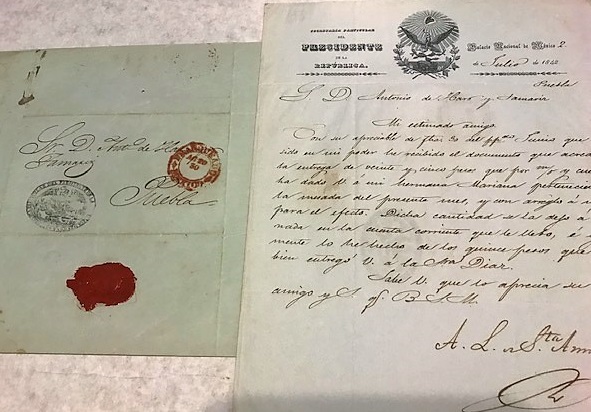 Sr. D. Anto. de Haro
Tamariz
Puebla
FRANQUEADO
MEXICO
SECRETARIA PARTICULAR
DEL
PRESIDENTE
DE LA
REPÚBLICA.
Palacio Nacional de México 2.
de Julio de 1842
Puebla
S. D. Antonio de Haro y Tamariz
Mi estimado amigo
Con su apreciable de fha 30 del ppo. Junio que
sido en mi poder he recibido el documento que acred
la entrega de veinte y cinco pesos que por m/o y cue
ha dado V. á mi hermana Mariana pertenecien
la mesada del presente mes, y con arreglo á
para el efecto. Dicha cantidad se la dejo á
nada en la cuenta corriente que le llevo, é
mente lo he hecho de los quince pesos que
bien entregó V. á la Sra. Diaz.
Sabe V. que lo aprecia su
amigo y S. q. B. S. M.
A. L. de Sta. Ann